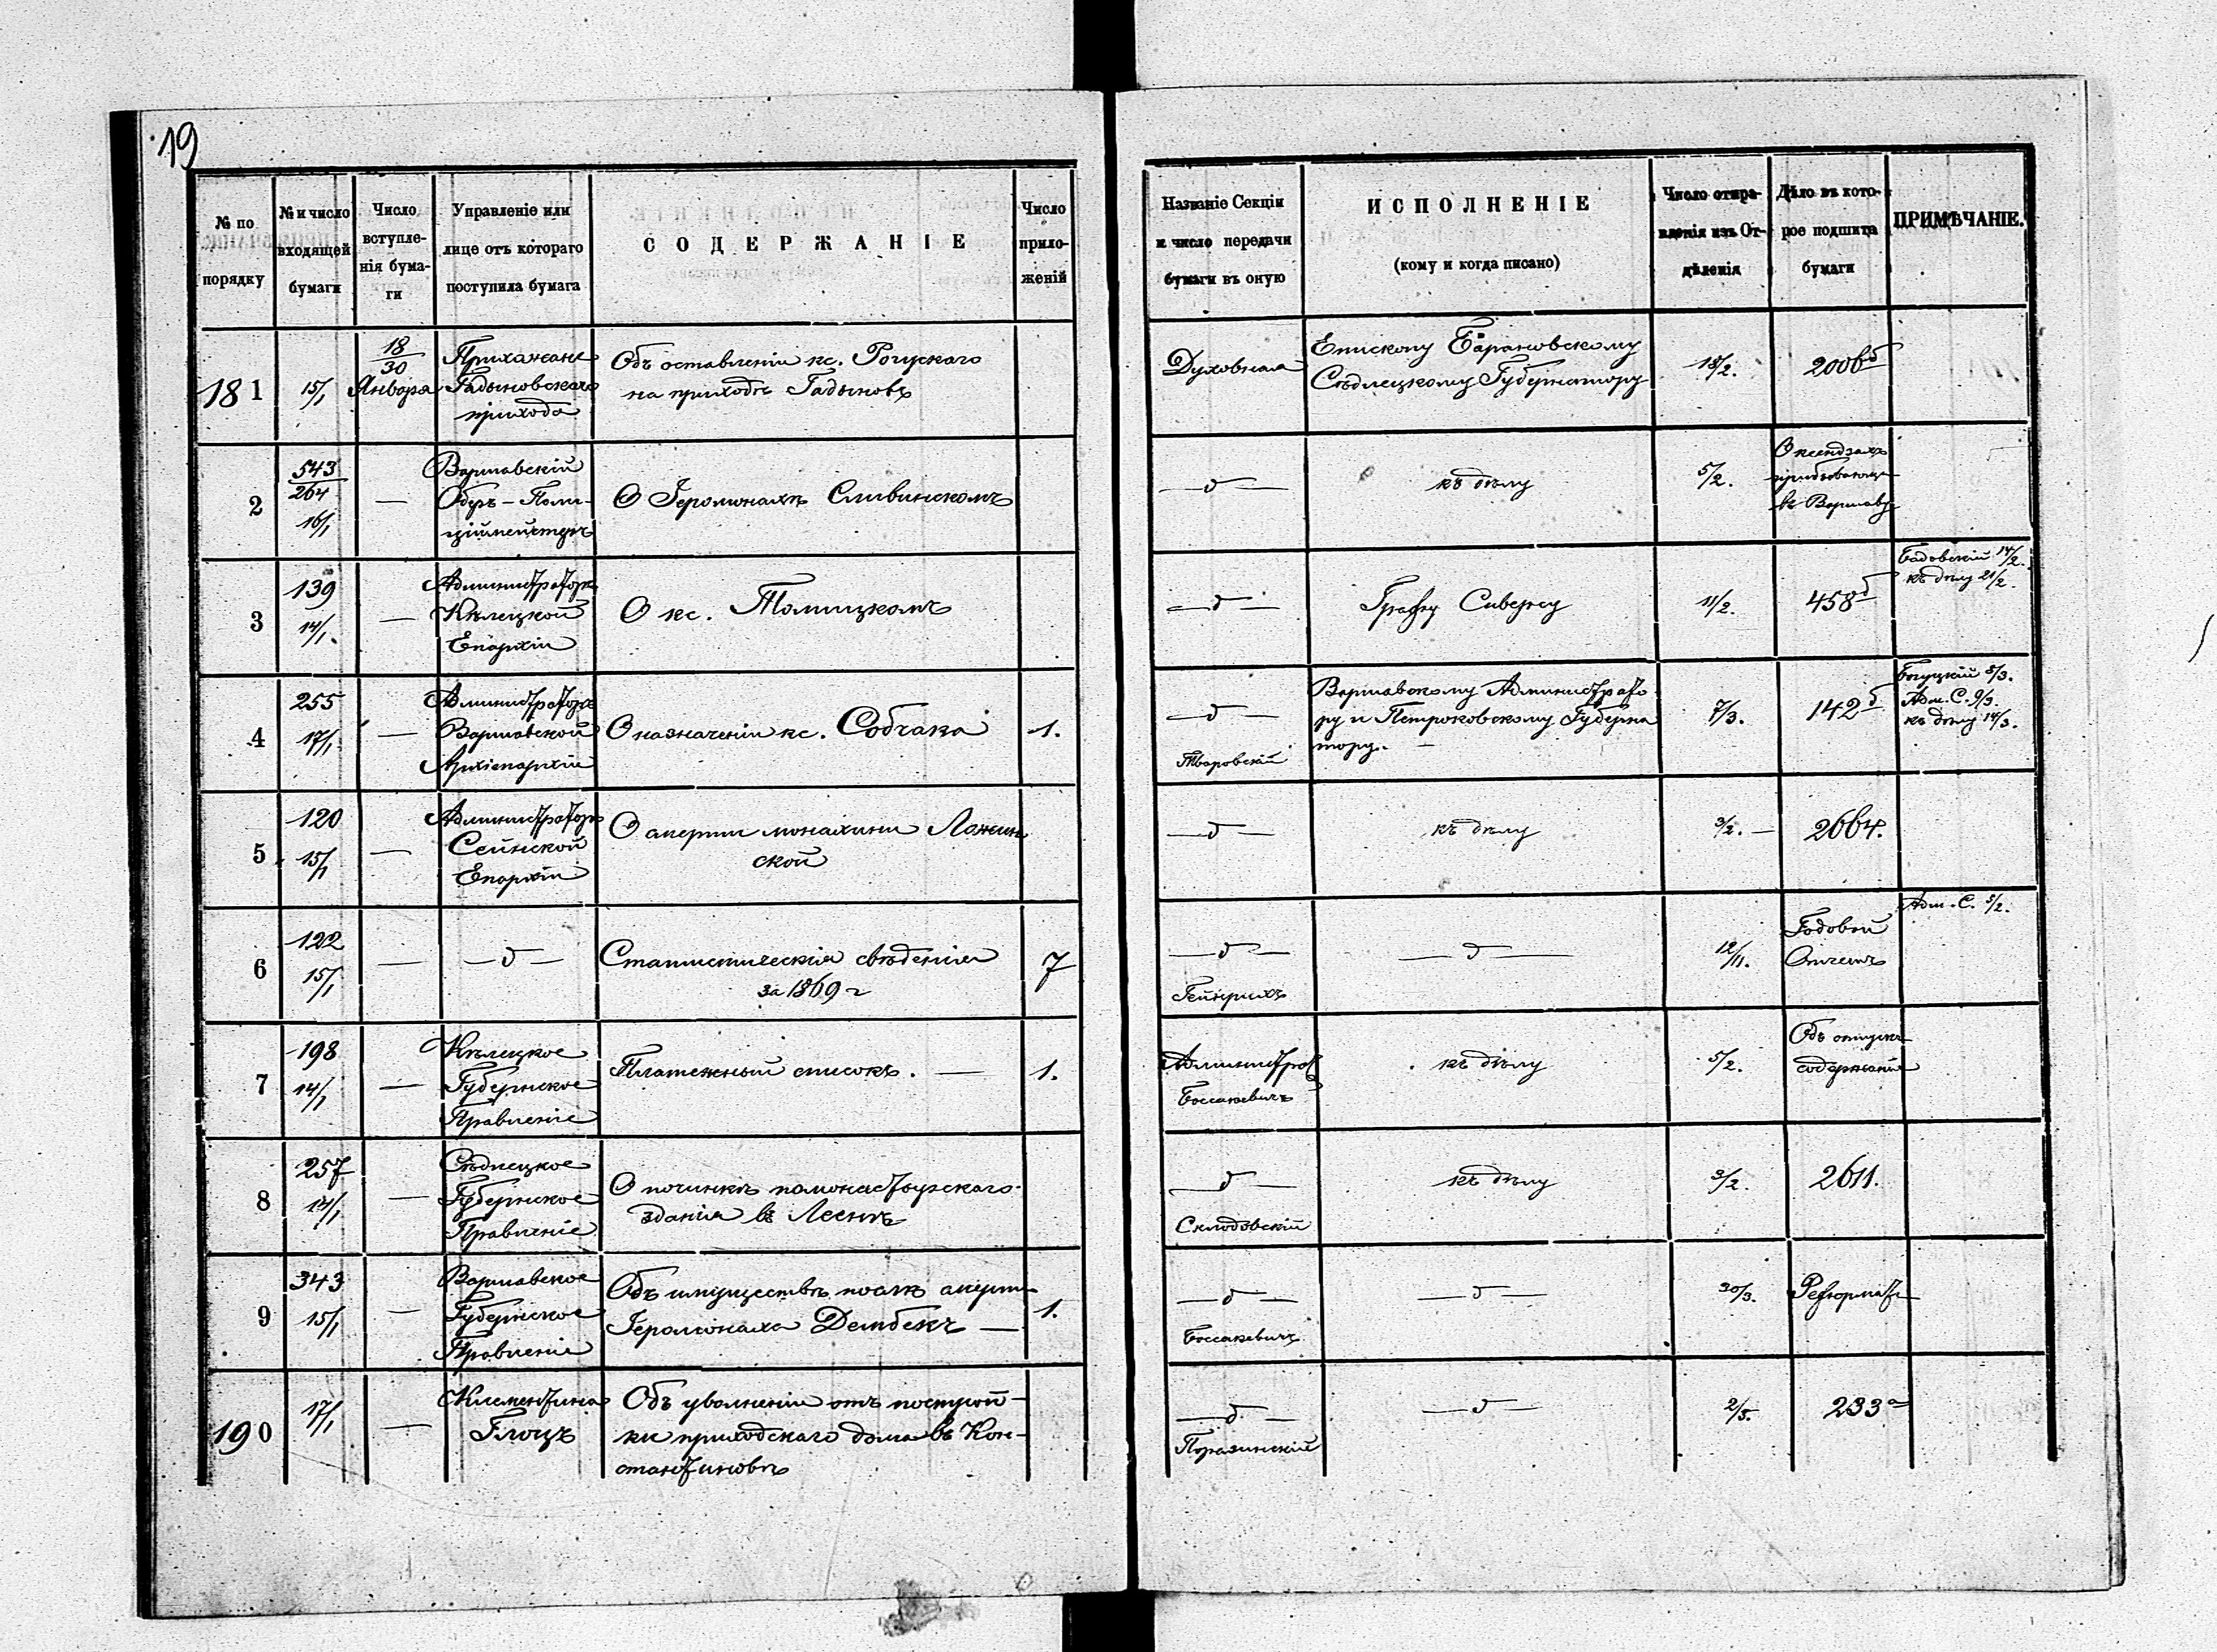 19
№ по порядку
№ и число входящей бумаги
Число вступле-
нія бума-
ги
Управленіе или
лице отъ котораго
поступила бумага
СОДЕРЖАНІЕ
Число
прило-
женій
Названіе Секціи
и число передачи
бумаги въ оную
ИСПОЛНЕНІЕ
(кому и когда писано)
Число отпра-
вленія изъ От-
дѣленія
Дѣло въ кото-
рое подшита
бумаги
ПРИМѢЧАНІЕ.
181
15/1
18/30
Января
Прихожане
Гадыновскаго
прихода
Объ оставленіи кс. Рогускаго
на приходѣ Гадыновъ
Духовная
Епископу Барановскому
Сѣдлецкому Губернатору
18/2.
200б
2
543/264
16/1
—
Варшавскій
Оберъ-Поли-
ційместеръ
О Іеромонахѣ Сливинскомъ
— д —
къ дѣлу
5/2.
О ксендзахъ
въ Варшаву
3
139
14/1.
—
Администраторъ
Кѣлецкой
Епархіи
О кс. Толицкомъ
— д —
Графу Сиверсу
11/2.
458б
14/2.
къ дѣлу 21/2.
4
255
17/1
—
Администраторъ
Варшавской
Архіепархіи
О назначеніи кс. Собчака
1.
— д —
Варшавскому Администрато-
ру и Петроковскому Губерна
тору. —
7/3.
142б
Богуцкій 8/3.
Адм. С. 9/3.
къ дѣлу 14/3.
5
120
15/1
—
Администраторъ
Сейнской
Епархіи
О смерти монахини
ской
— д —
къ дѣлу
3/2. —
2664.
6
122
15/1
—
— д —
Статистическія свѣденія
за 1869 г
7
— д —
Гейнрихъ
— д —
12/11.
Годовой
Отчетъ
Адм. С. 5/2.
7
198
14/1
—
Кѣлецкое
Губернское
Правленіе
Платежный списокъ. —
1.
Администрат
Боссакевичъ
къ дѣлу
5/2.
Объ отпускѣ
содержанія
8
257
14/1
—
Сѣдлецкое
Губернское
Правленіе
О починкѣ помонастырскаго
зданія въ Леснѣ
— д —
Склодовскій
къ дѣлу
3/2.
2611.
9
343
15/1
—
Варшавское
Губернское
Правленіе
Объ имуществѣ послѣ смерти
Іеромонаха Дембекъ —
1.
— д —
Боссакевичъ
— д —
30/3.
Реформаты
190
17/1
—
Клементина
Глоцъ
Объ увольненіи отъ построй-
ки приходскаго дома въ Кон-
стантиновѣ
— д —
Поразинскій
— д —
2/5.
233а